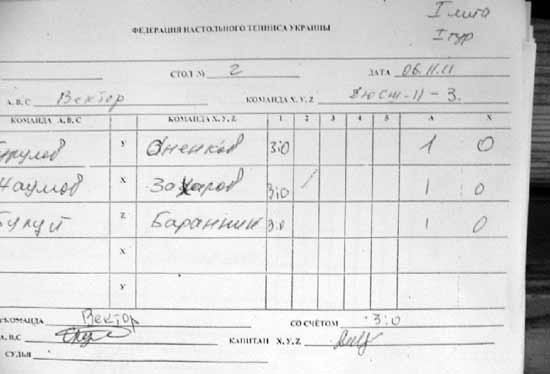 I лига
I тур
ФЕДЕРАЦИЯ НАСТОЛЬНОГО ТЕННИСА УКРАИНЫ
СТОЛ № 2 ДАТА 06.11.11
А, В, С Вектор КОМАНДА X, Y, Z -11-3.
КОМАНДА А, В, С КОМАНДА X, У, Z 1 2 3 4 5 А X
У 3:0 1 0
Наумов X Захаров 3:0 1 0
Z Баранник 3:0 1 0
X
У
КОМАНДА Вектор СО СЧЁТОМ 3:0
А, В, С КАПИТАН X, Y, Z
СУДЬЯ